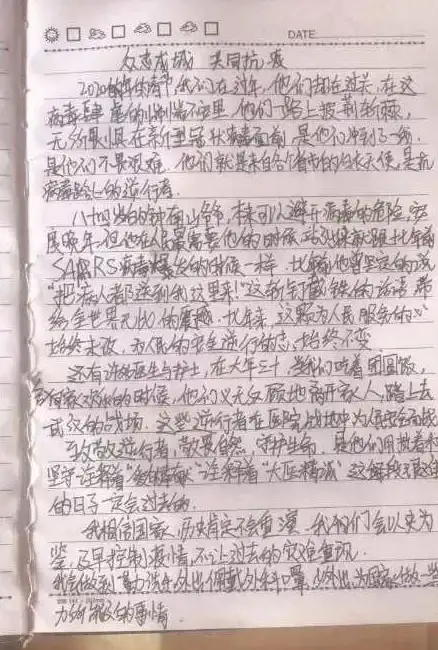 DATE
众志成城 共同抗疫
2020的春节,我们在过年,他们却在过关,在这
病毒肆虐的时候,他们一路上披荆斩棘,
无所畏惧在新型冠状病毒面前,是他们冲到了一线,
是他们不畏艰难,他们就是来自各个省市的白衣天使,是抗
病毒路上的逆行者。
八十四岁的钟南山爷爷,本来可以避开病毒的危险,安
度晚年,但他在人民最需要他的时候,站出来就跟十七年前
SARS病毒爆发的时候一样,十七年前他曾坚定的说
"把病人都送到我这里来!"这斩钉截铁的话语,带
给全世界无比的震撼,十七年来,这颗为人民服务的心
始终未改,为人民的安全逆行的志,始终不变
还有许多医生与护士,在大年三十,当我们吃着团圆饭,
的时候,他们义无反顾地离开家人,踏上去
武汉的战场。这些逆行者在医院战场中为人民安全而战
致敬逆行者,敬畏自然,守护生命,是他们用
坚守诠释着 诠释着"大医精诚"这
的日子一定会过去的。
我相信国家,历史肯定不会重演,我们会以史为
鉴,及早控制疫情,不让过去的灾难重现。
我会做到:勤洗手,外出佩戴外科口罩,少外出,为国家做一些
力所能及的事情